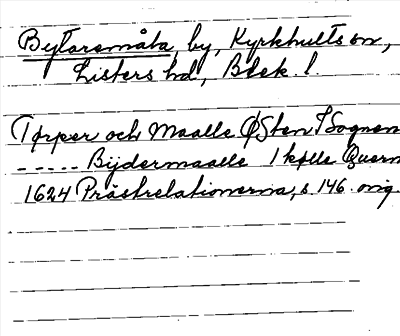 Bytaremåla, by, Kyrkhults sn,
Listers hd, Blek. l.
Torper och Maalle Østen I Sognen
----- Bijdermaalle 1 kplle Quern
1624 Prästrelationerna, s. 146. orig.